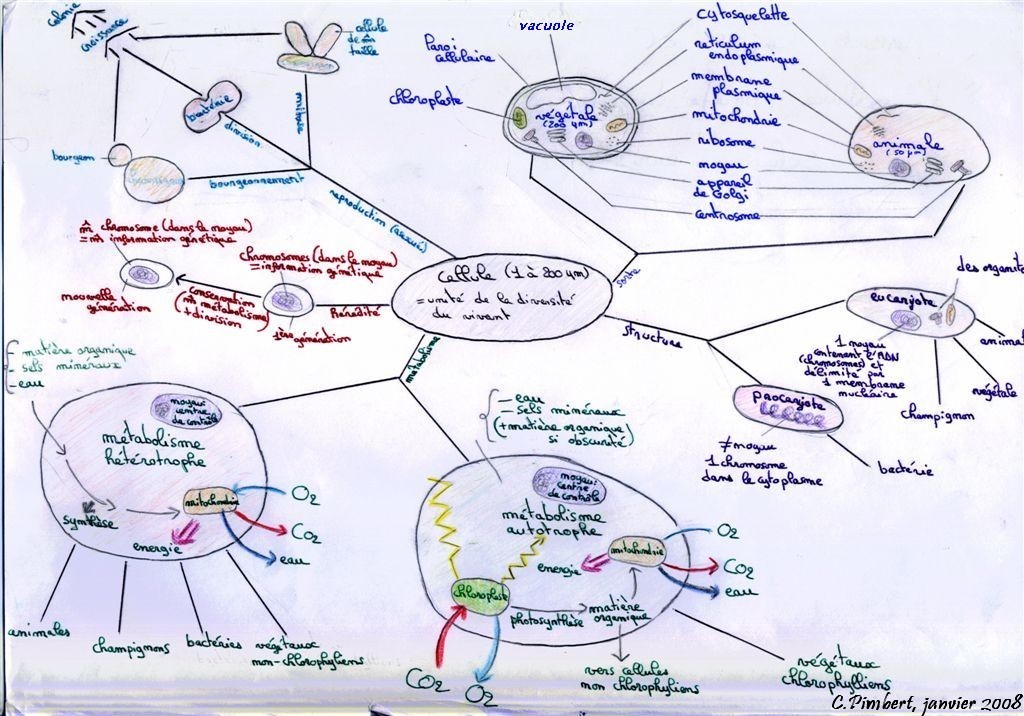 colonie
croissance
cellule
de m̂
taille
mitose
bactérie
division
bourgeon
bourgeonnement
reproduction (asexuée)
vacuole
Paroi
cellulaire
chloroplaste
végétale
(200 µm)
cytosquelette
reticulum
endoplasmique
membrane
plasmique
mitochondrie
ribosome
noyau
appareil
de Golgi
centrosome
animale
(50 µm)
m̂ chromosome (dans le noyau)
= m̂ information génétique
chromosomes (dans le noyau)
= information génétique
nouvelle
génération
conservation
(m̂ métabolisme)
+ division
1ère génération
hérédité
cellule (1 à 200 µm)
= unité de la diversité
du vivant
sorte
structure
métabolisme
des organites
eucaryote
1 noyau
contenant l'ADN
(chromosomes) et
délimité par
1 membrane
nucléaire
animal
végétale
champignon
procaryote
≠ noyau
1 chromosome
dans le cytoplasme
bactérie
- matière organique
- sels minéraux
- eau
noyau:
centre
de contrôle
métabolisme
hétérotrophe
synthèse
mitochondrie
énergie
O2
CO2
eau
animales
champignons
bactéries
végétaux
non-chlorophyliens
- eau
- sels minéraux
(+ matière organique)
si obscurité
noyau:
centre
de contrôle
métabolisme
autotrophe
chloroplaste
photosynthèse
matière
organique
énergie
mitochondrie
O2
CO2
eau
CO2
O2
vers cellules
non chlorophyliens
végétaux
chlorophylliens
C.Pimbert, janvier 2008